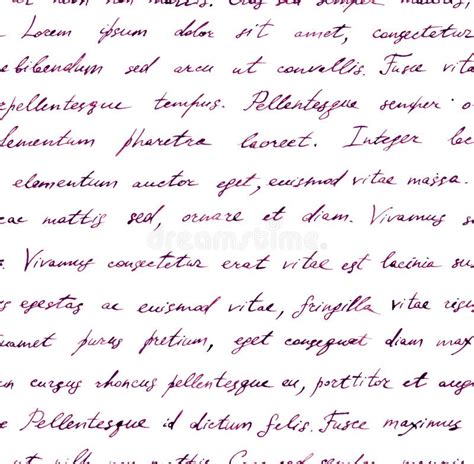 ut nibh non mattis. Cras sed semper mauris,
Lorem ipsum dolor sit amet, consectetur
bibendum sed arcu ut convallis. Fusce vita
pellentesque tempus. Pellentesque semper
lementum pharetra laoreet. Integer lac
elementum auctor eget, euismod vitae massa.
ac mattis sed, ornare et diam. Vivamus s
. Vivamus consectetur erat vitae est lacinia su
s egestas ac euismod vitae, fringilla vitae risus
amet purus pretium, eget consequat diam max
n cursus rhoncus pellentesque eu, porttitor et aug
e Pellentesque id dictum felis. Fusce maximus
ut nibh non mattis. Cras sed semper mauris
dreamstime